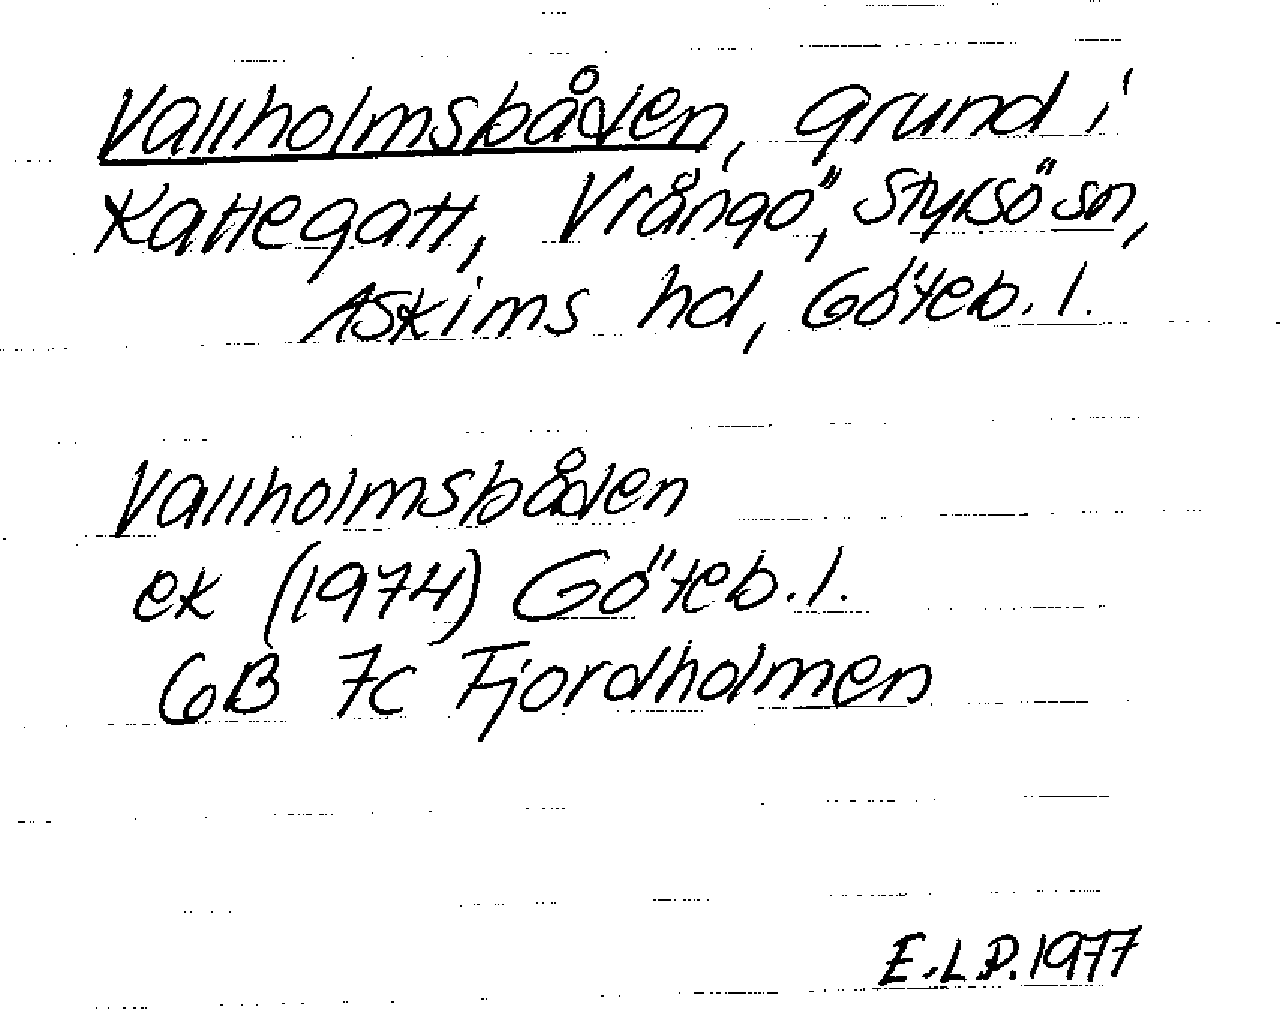 Vallholmsbåden, grund i
Kattegatt, Vrångö, Styrsö sn,
Askims hd, Göteb. l.
Vallholmsbåden
ek (1974) Göteb. l.
6B 7c Fjordholmen
E.L.P. 1977